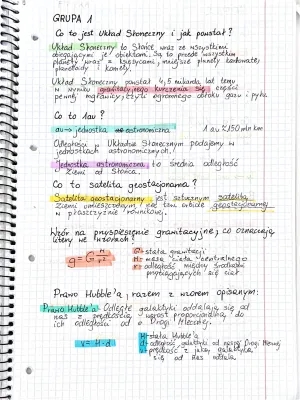 GRUPA 1
Co to jest Układ Słoneczny i jak powstał?
Układ Słoneczny to Słońce wraz ze wszystkimi
obiegającymi je obiektami. Są to przede wszystkim
planety wraz z księżycami, mniejsze planety karłowate,
planetoidy i komety.
Układ Słoneczny powstał 4,5 miliarda lat temu
w wyniku grawitacyjnego kurczenia się części
pewnej mgławicy, czyli ogromnego obłoku gazu i pyłu.
Co to 1au?
au → jednostka astronomiczna 1 au ≈ 150 mln km
Odległości w Układzie Słonecznym podajemy w
jednostkach astronomicznych.
Jednostka astronomiczna to średnia odległość
Ziemi od Słońca.
Co to satelita geostacjonarna?
Satelita geostacjonarny jest sztucznym satelitą
Ziemi umieszczonym nad tzw. orbicie geostacjonarnej
w płaszczyźnie równikowej.
Wzór na przyspieszenie grawitacyjne, co oznaczają
litery we wzorach?
g = G M/r² G - stała grawitacji
M - masa ciała centralnego
r - odległość między środkami
przyciągających się ciał
Prawo Hubble'a, razem z wzorem opisanym:
Prawo Hubble'a: Odległe galaktyki oddalają się od
nas z prędkością wprost proporcjonalną do
ich odległości od Drogi Mlecznej.
v = H · d H - stała Hubble'a
d - odległość galaktyki od naszej Drogi Mlecznej
v - prędkość z jaką galaktyka
się od nas oddala